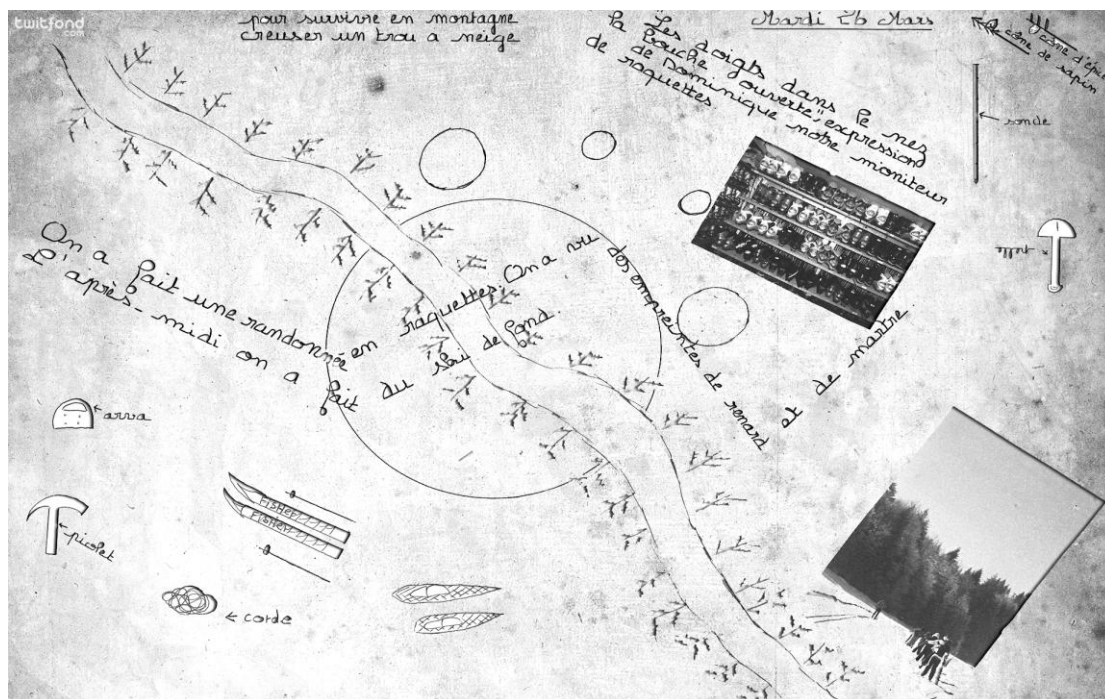 twitfond
.com
pour survivre en montagne
creuser un trou à neige
"Les doigts dans le nez
la bouche ouverte" expression
de Dominique notre moniteur
de raquettes
Mardi 26 Mars
cône d'épi
cône de sapin
sonde
pelle
On a fait une randonnée en raquettes. On a vu des empreintes de renard et de martre
L'après-midi on a fait du ski de fond
arva
FISHER
FISHER
piolet
corde